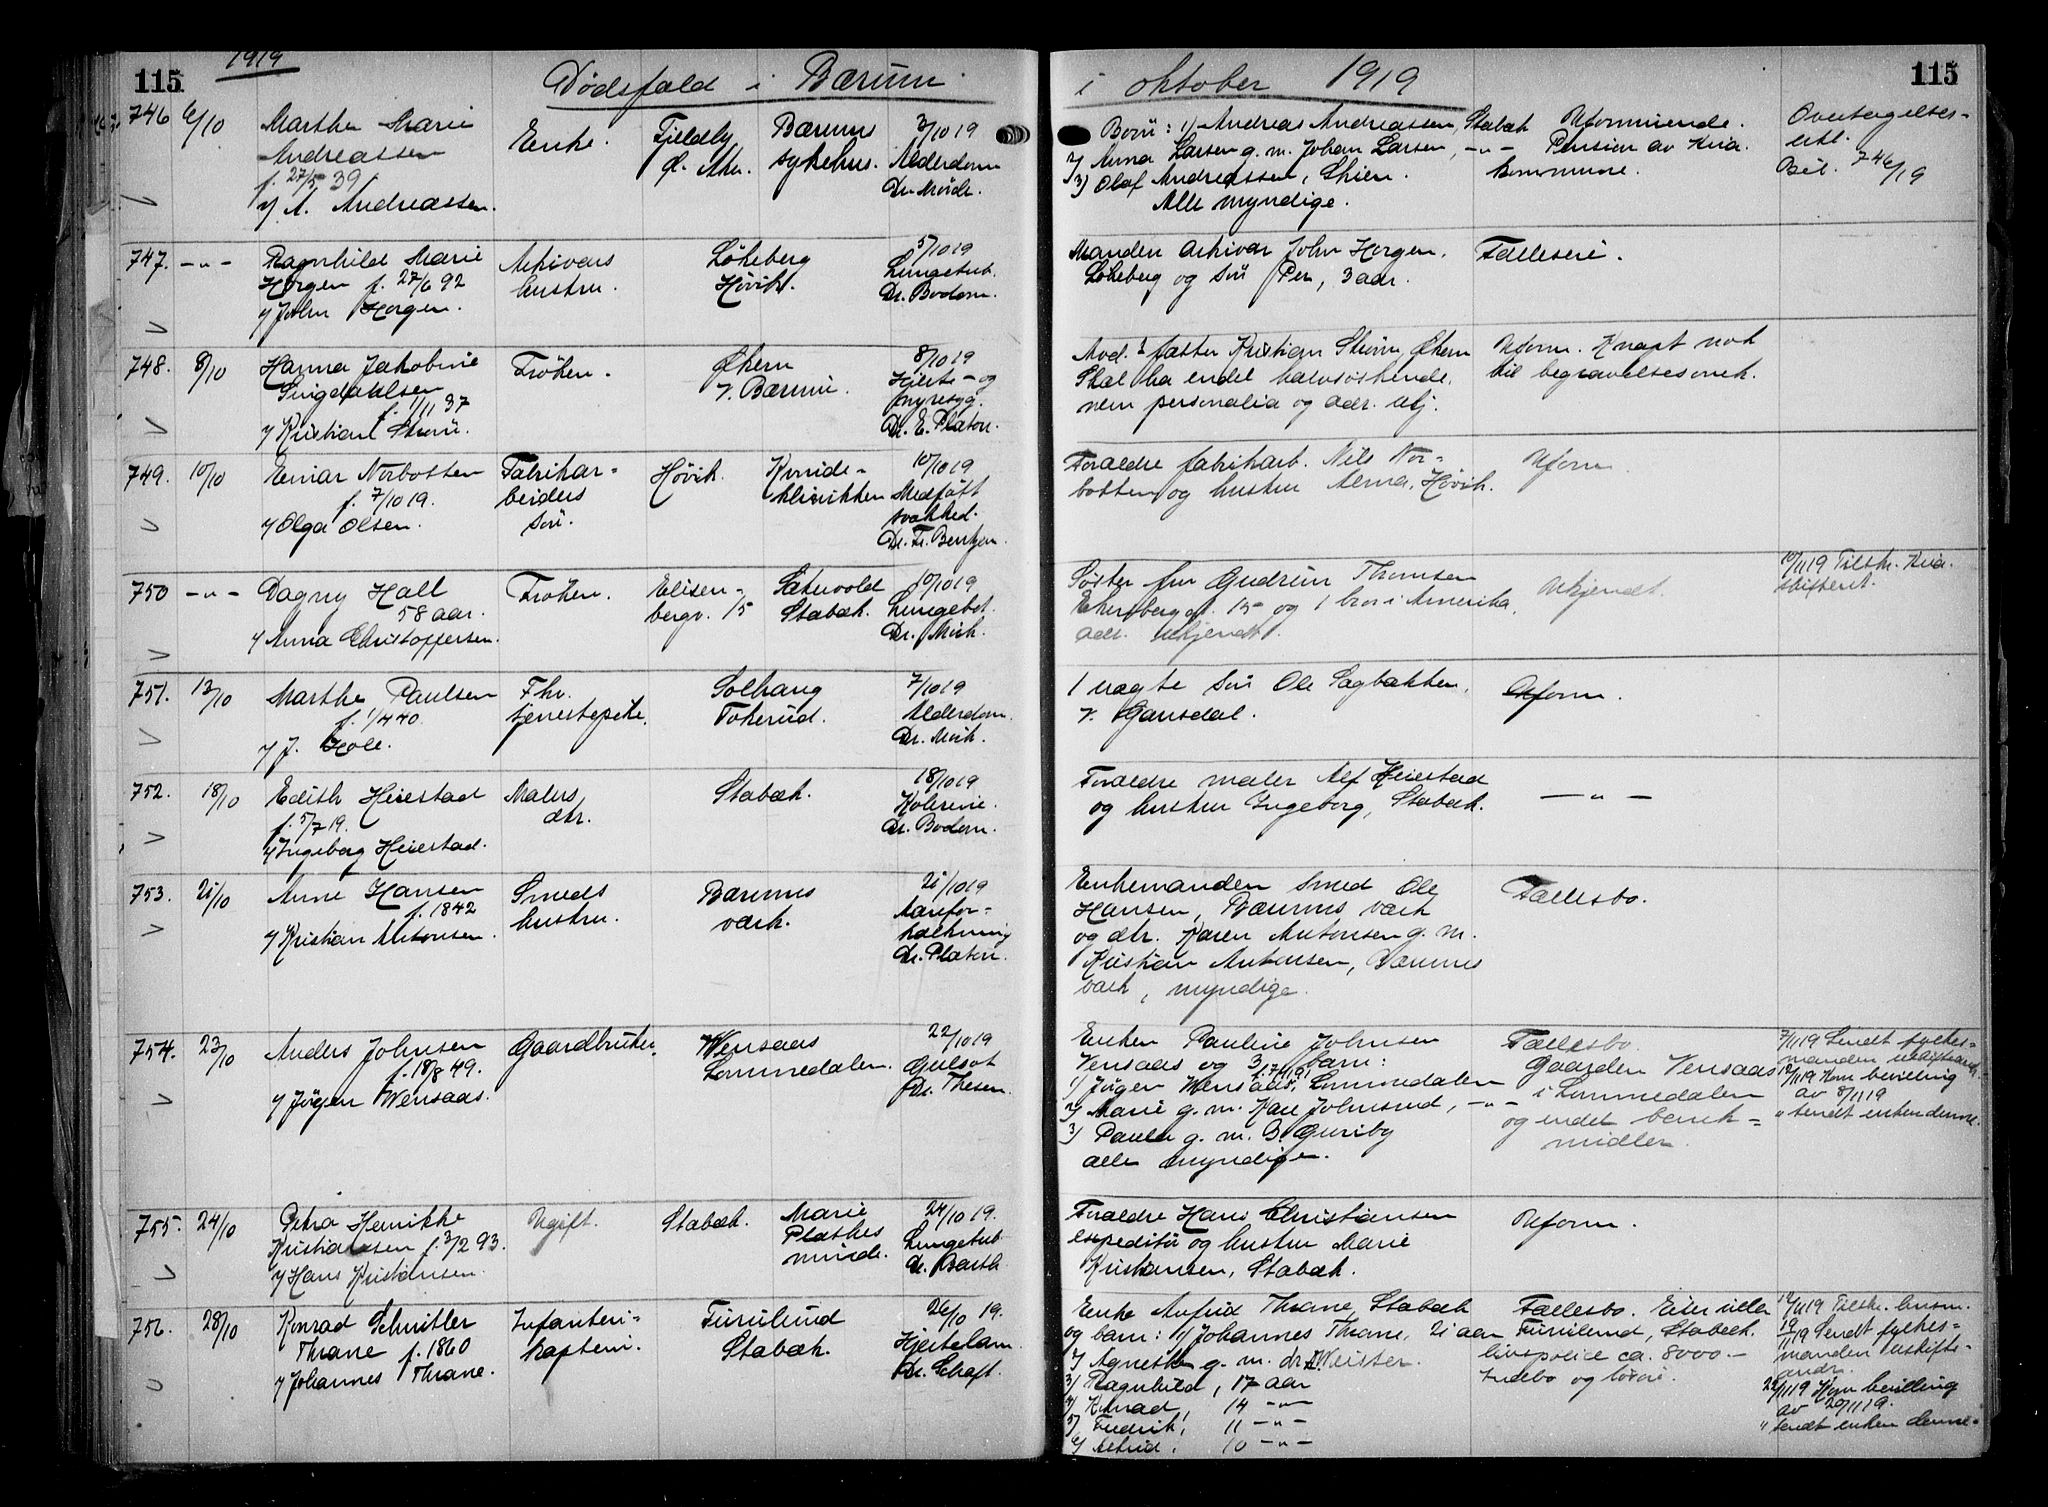 1919
115
Dødsfald i Bærum
i oktober 1919
115
746 6/10
Marthe Marie
Andreassen
f. 27/5 39
A. Andreassen.
Enke.
Fjeldly
Bærums
sykehus.
3/10 19
Alderdom
Børn: 1) Andreas Andreassen, Stabæk
2) Anna Larsen g. m. Johan Larsen, -"-
3) Olaf Andreassen, Skien.
Alle myndige.
Uformuende.
Pension av Kria.
kommune.
Overtagelses-
erkl.
Beil. 746/19
747. -"-
Ragnhild Marie
Horgen f. 27/6 92
John Horgen.
Arkivars
hustru.
Løkeberg
Høvik.
5/10 19
Lungetub.
Dr. Bodom.
Manden arkivar John Horgen,
Løkeberg og søn Per, 3 aar.
Fælleseie.
748. 8/10
Hanna Jakobine
Lingdahlsen
f. 1/11 37
Kristian Strøm.
Frøken.
Økern
V. Bærum.
8/10 19
Hjerte- og
nyresyg.
Dr. E. Platou.
fætter Kristian Strøm, Økern
Skal ha endel halvsøskende,
men personalia og adr. ukj.
Uform. Knapt nok
til begravelsesomk.
749. 10/10
Einar Norbotten
f. 7/10 19.
Olga Olsen.
Fabrikar-
beiders
søn.
Høvik.
Kvinde-
klinikken
10/10 19
Medfødt
svakhed.
Forældre fabrikarb. Nils Nor-
botten og hustru Alma, Høvik.
Uform.
750 -"-
Dagny Hall
58 aar.
Anna Christoffersen.
Frøken.
Elisen-
bergv. 15
Sætervold
Stabæk.
10/10 19
Lungebet.
Søster fru Gudrun Thomsen
15 og 1 bror i Amerika,
adr. ukjendt.
Ukjendt.
10/11 19 Tilskr. Kria.
skifteret.
751. 13/10
Marthe Paulsen
f. 1/4 40.
J. Hole.
Fhv.
tjenestepike.
Solhaug
Tokerud.
7/10 19
Alderdom.
1 uægte søn Ole Sagbakken,
V. Gausdal.
Uform.
752. 18/10
Edith Heiestad
f. 5/7 19.
Ingeborg Heiestad.
Malers
dtr.
Stabæk.
18/10 19
Kolerine.
Dr. Bodom.
Forældre maler Alf Heiestad
og hustru Ingeborg, Stabæk.
-"-
753. 21/10
Anne Hansen
f. 1842
Kristian Antonsen.
Smeds
hustru.
Bærums
værk.
21/10 19
Aarefor-
kalkning
Dr. Platou.
Enkemanden smed Ole
Hansen, Bærums værk
og dtr. Karen Antonsen g. m.
Kristian Antonsen, Bærums
værk, myndige.
Fællesbo.
754. 23/10
Anders Johnsen
f. 18/8 49.
Jørgen Wensaas.
Gaardbruker.
Wensaas
Lommedalen.
22/10 19
Gulsot
Dr. Thesen.
Enken Pauline Johnsen
Vensaas og 3 barn:
1) Jørgen Wensaas, Lommedalen
2) Marie g. m. Kare Johnsrud, -"-
3) Paula g. m. B. Guriby
alle myndige.
Fællesbo.
Gaarden Vensaas
i Lommedalen
og endel bank-
midler.
7/11 19 Sendt fylkes-
manden uskifteandr.
12/11 19 Kom bevilling
av 8/11 19
" sendt enken denne.
755. 24/10
Petra Henrikke
Kristiansen f. 3/2 93.
Hans Kristiansen.
Ugift.
Stabæk.
Marie
Plathes
minde.
24/10 19.
Lungetub.
Dr. Barth
Forældre Hans Christiansen
expeditør og hustru Marie
Kristiansen, Stabæk.
Uform.
756. 28/10
Konrad Schnitler
Thrane f. 1860
Johannes Thrane.
Infanteri-
kaptein.
Furulund
Stabæk.
26/10 19.
Hjertelam.
Enke Anfrid Thrane, Stabæk
og barn: 1) Johannes Thrane, 21 aar
2) Agnethe g. m. dr.
3) Ragnhild, 17 aar
4) Konrad, 14 -"-
5) Fredrik, 11 -"-
6) Astrid, 10 -"-
Fællesbo. Eier villa
Furulund, Stabæk.
livspolice ca. 8000 -
Indbo og løsøre.
12/11 19 Tilskr. lensm.
19/11 19 Sendt fylkes-
manden uskifte-
andr.
22/11 19 Kom bevilling
av 20/11 19.
" sendt enken denne.